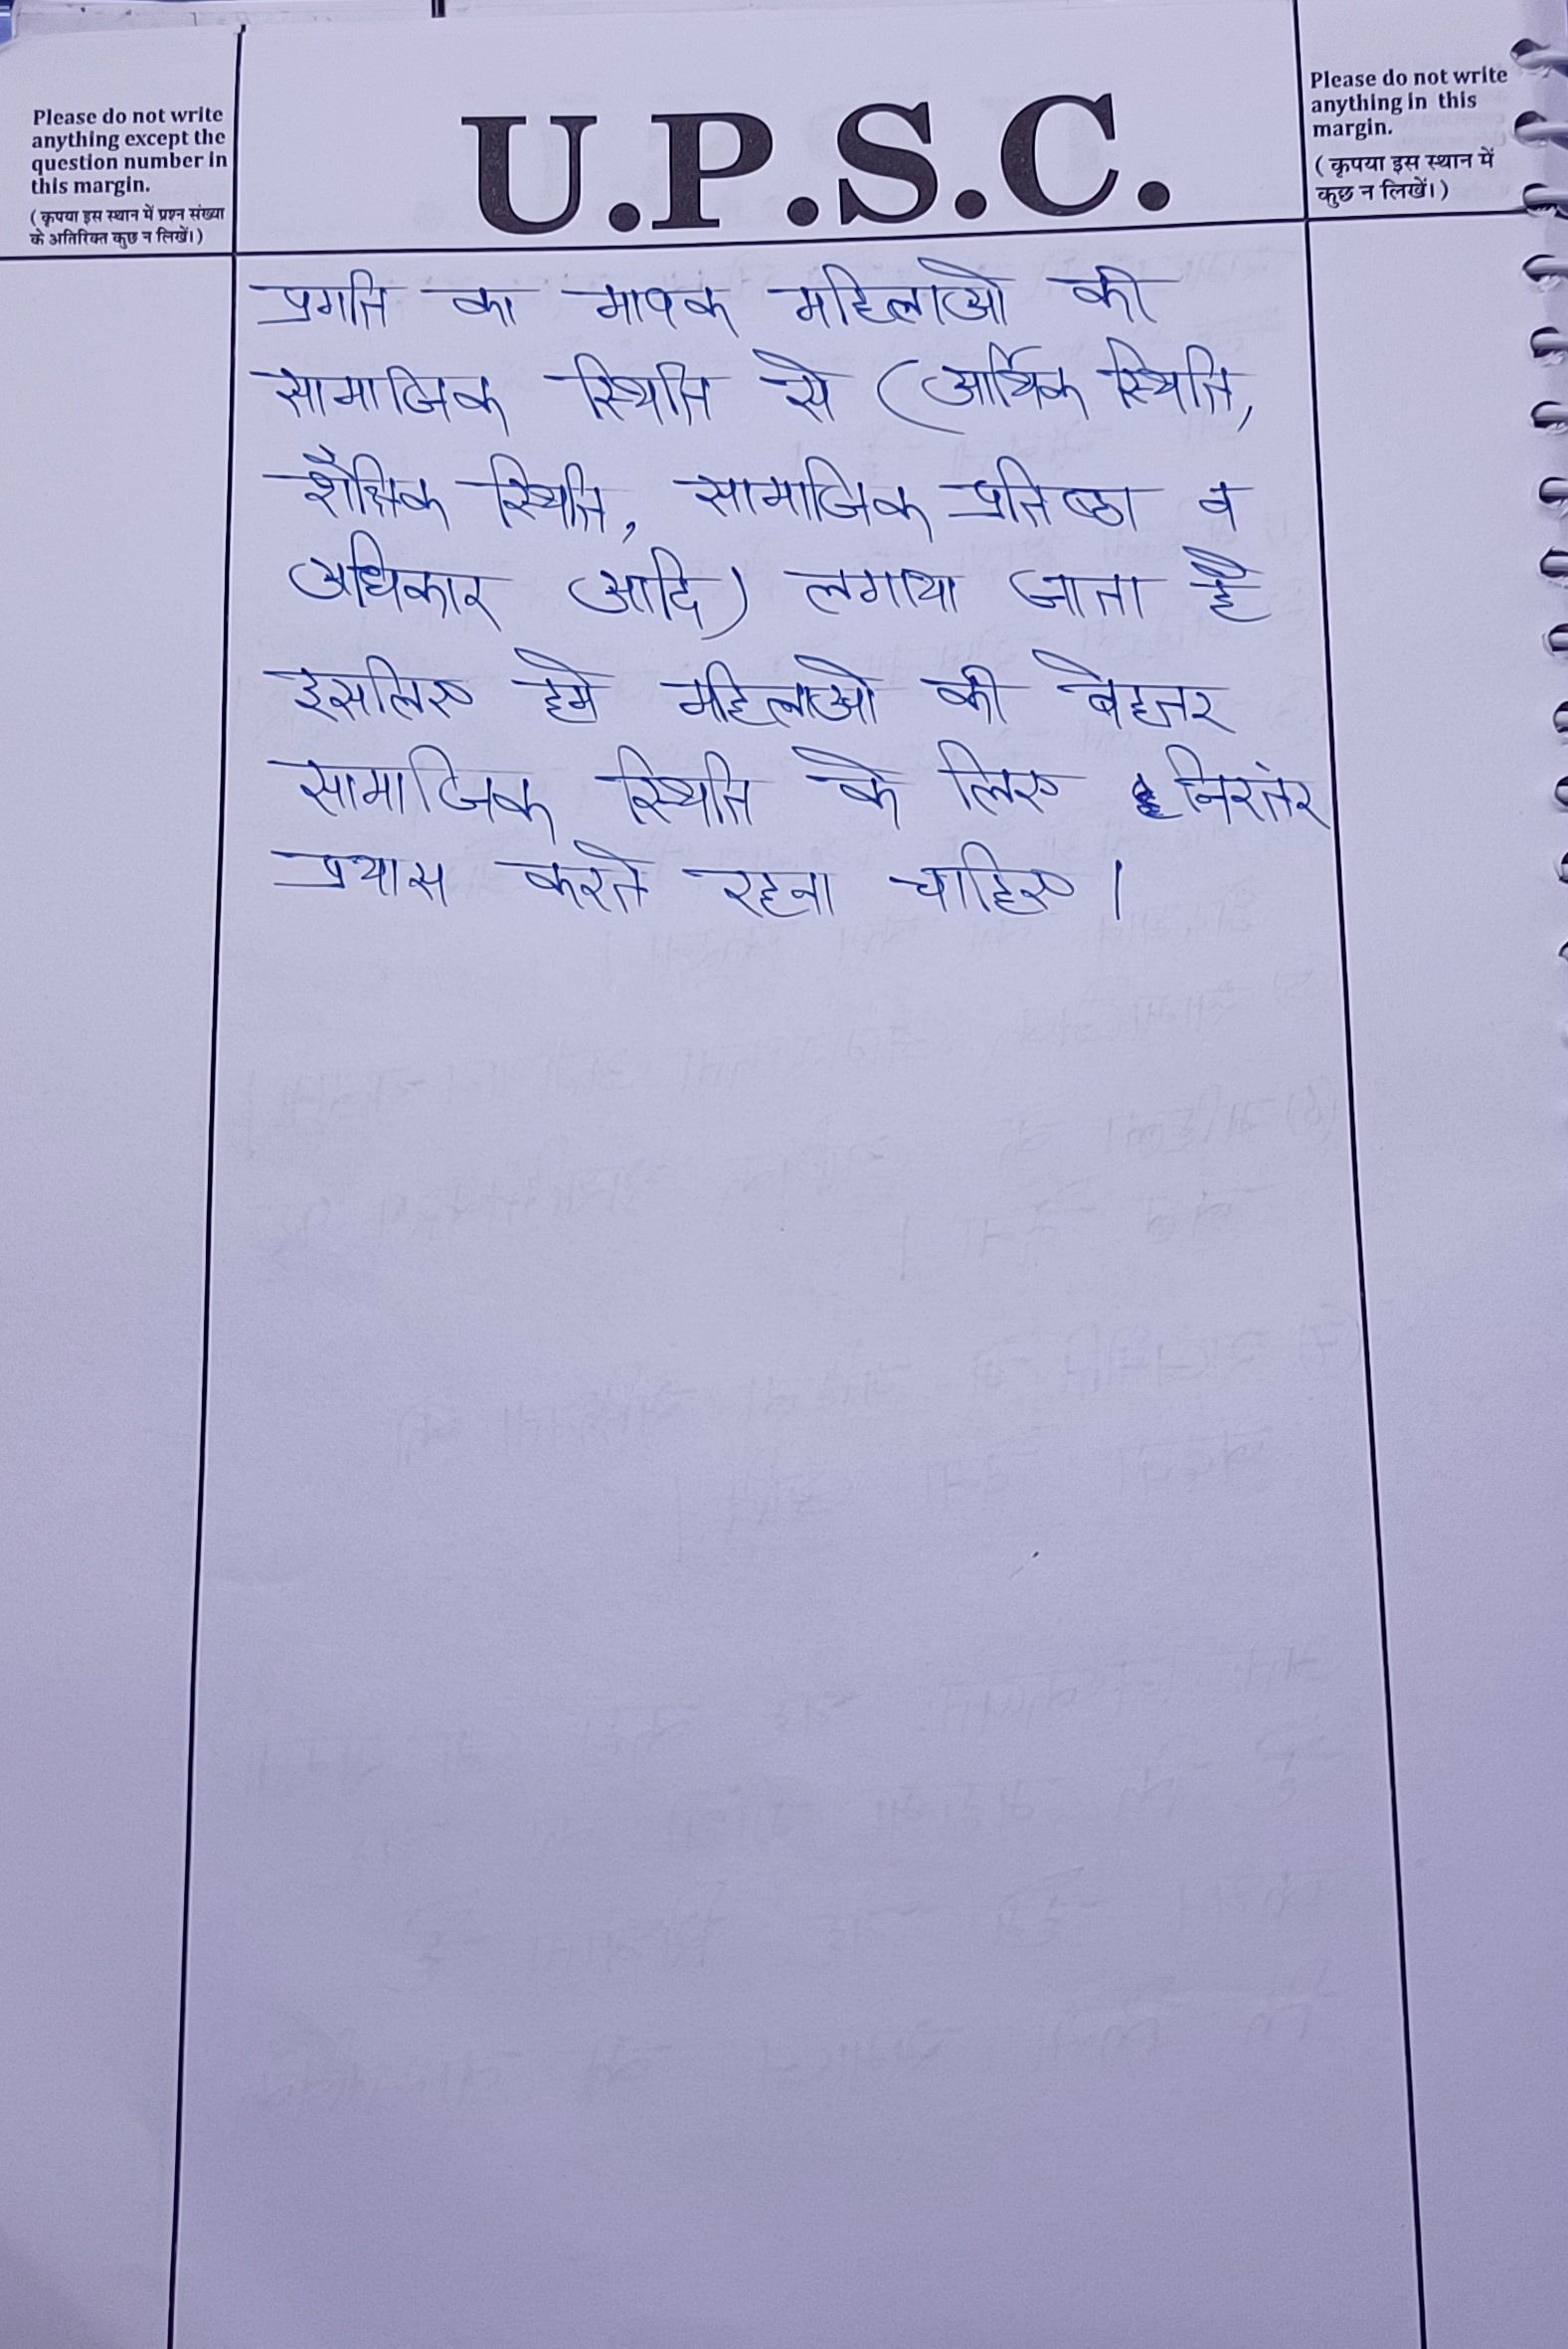 Please do not write
anything except the
question number in
this margin.
(कृपया इस स्थान में प्रश्न संख्या
के अतिरिक्त कुछ न लिखें।)
U.P.S.C.
Please do not write
anything in this
margin.
(कृपया इस स्थान में
कुछ न लिखें।)
प्रगति का मापक महिलाओ की
सामाजिक स्थिति से (आर्थिक स्थिति,
शैक्षिक स्थिति, सामाजिक प्रतिष्ठा व
अधिकार आदि) लगाया जाता है
इसलिए हमे महिलाओ की बेहतर
सामाजिक स्थिति के लिए निरतंर
प्रयास करते रहना चाहिए।